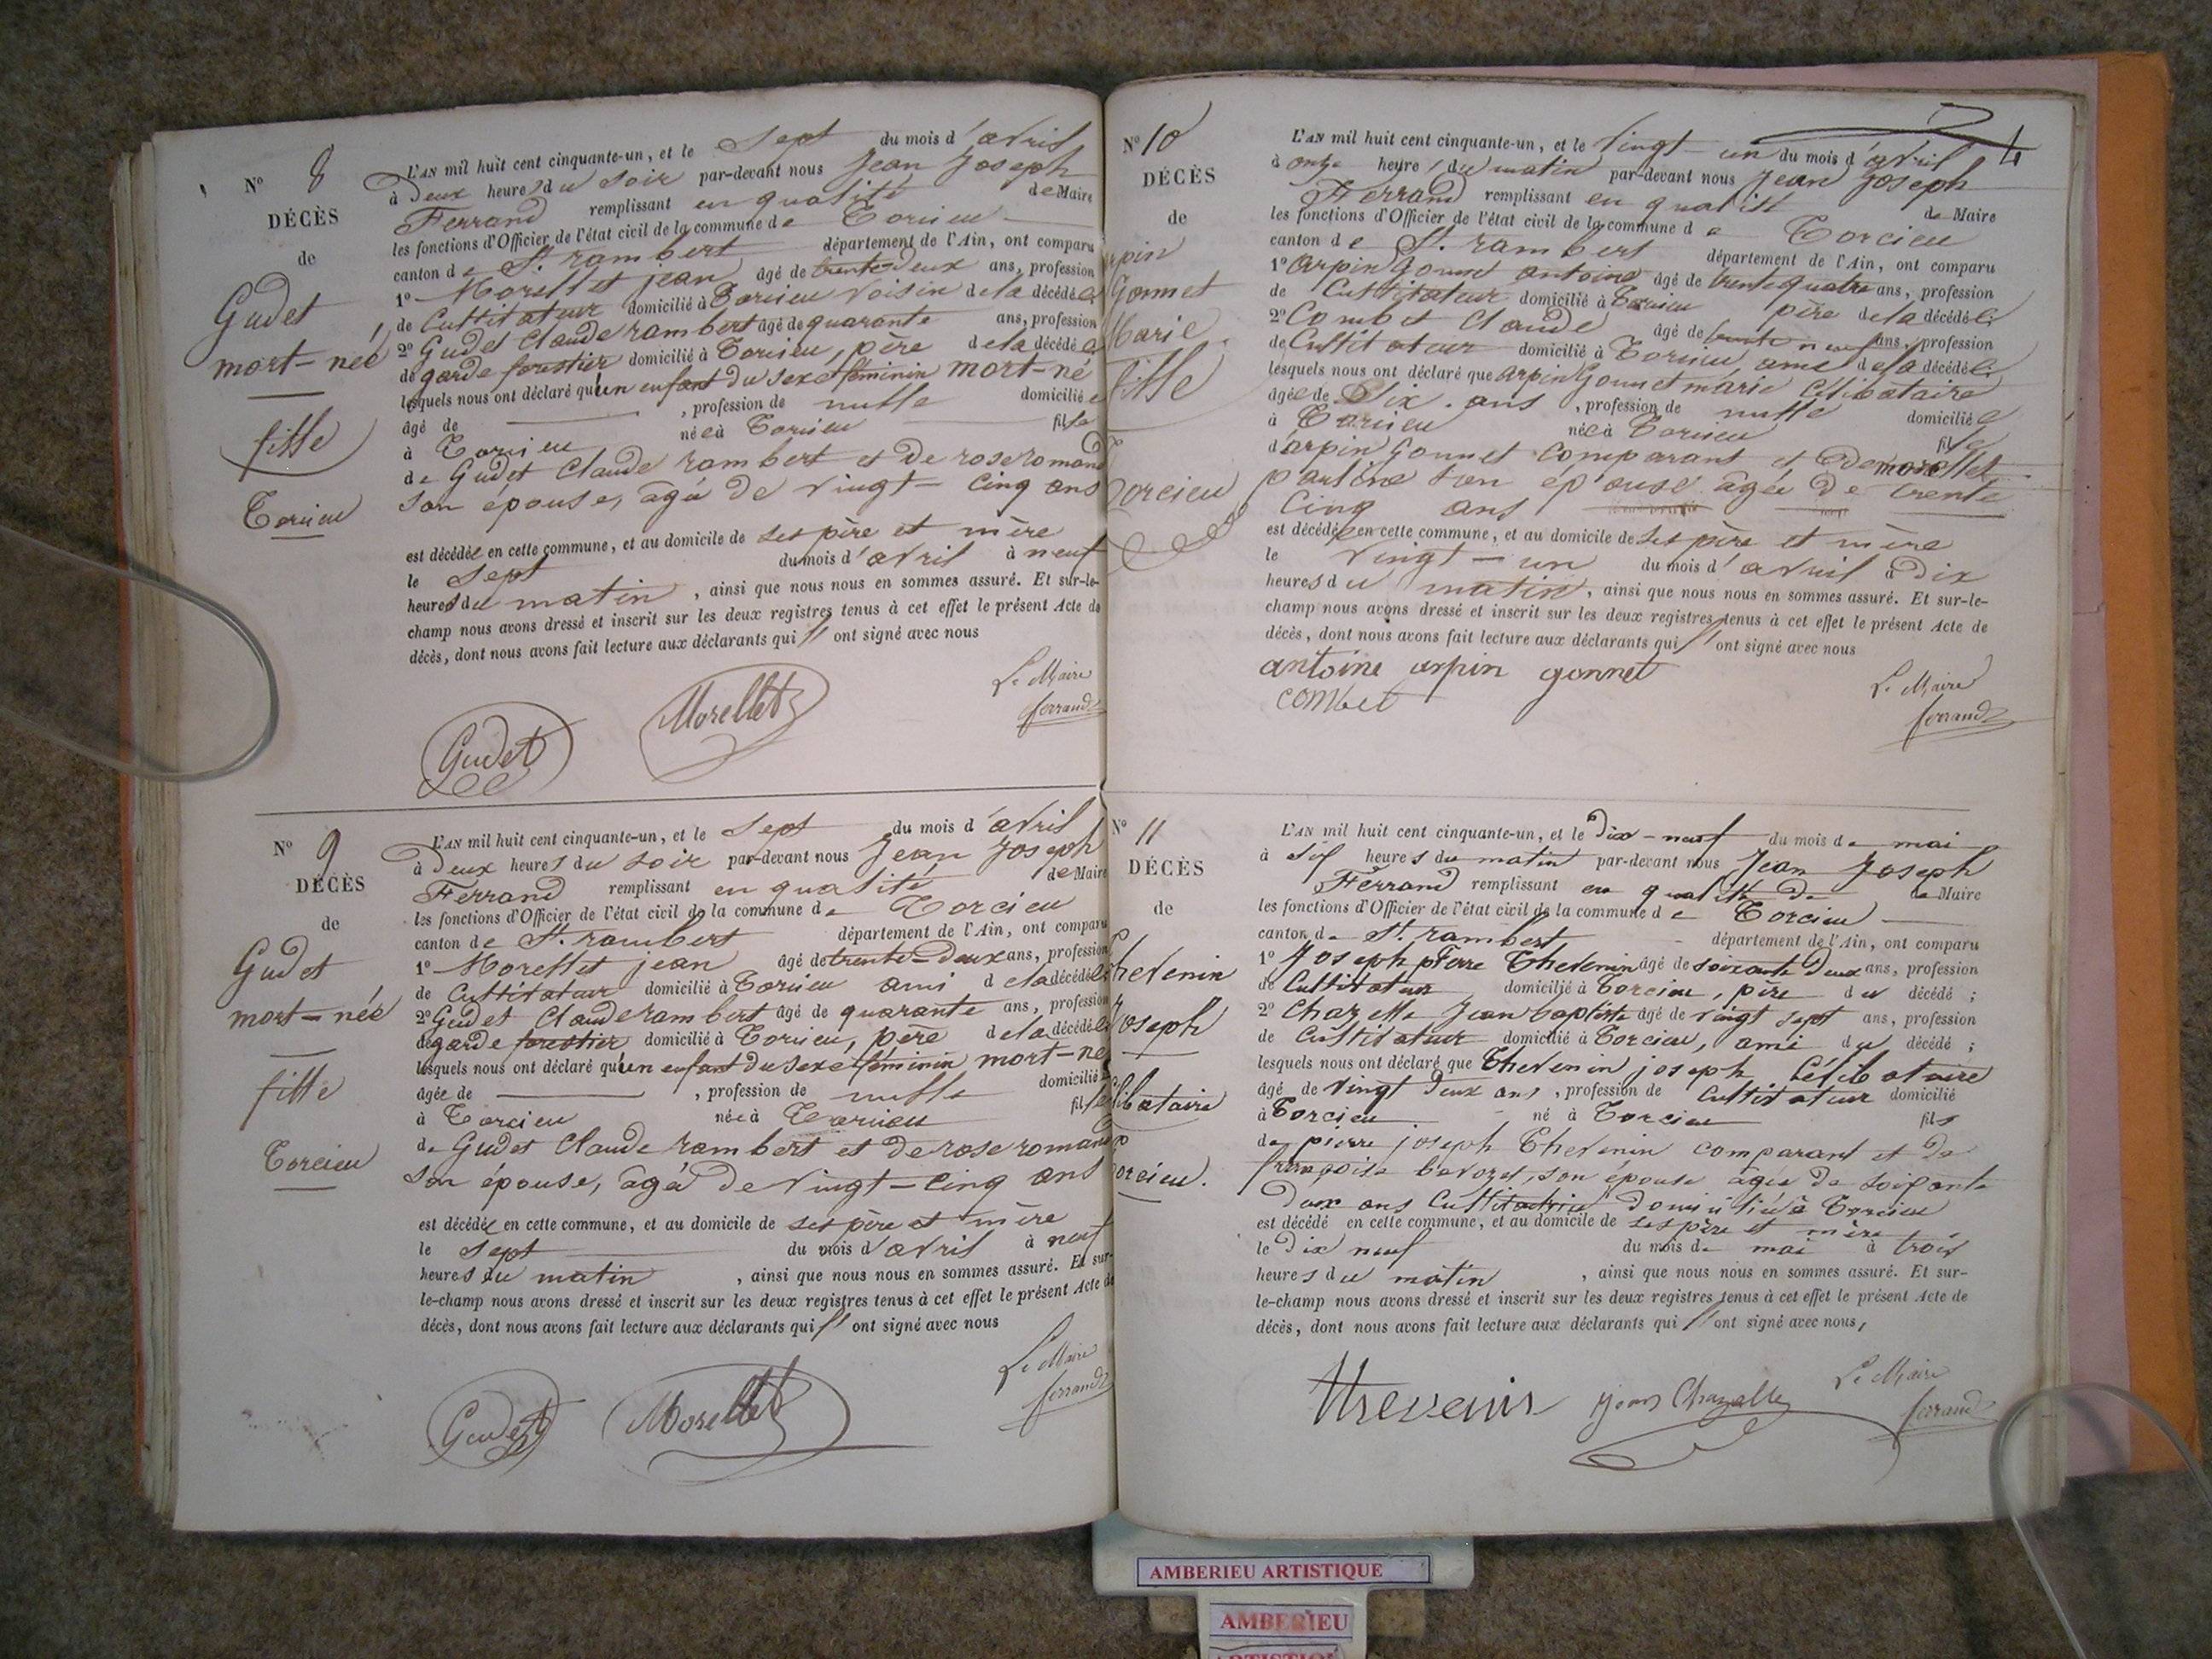 N° 8
DÉCÈS
de
Gudet
mort-née
fille
Torcieu
L'AN mil huit cent cinquante-un, et le Sept du mois d'avril
à Deux heures du soir par-devant nous Jean Joseph
Ferrand remplissant en qualité de Maire
les fonctions d'Officier de l'état civil de la commune de Torcieu
canton de St. rambert département de l'Ain, ont comparu
1° Morellet jean âgé de trente-Deux ans, profession
de Cultivateur domicilié à Torcieu voisin de la décédée
2° Gudet Claude rambert âgé de quarante ans, profession
de garde forestier domicilié à Torcieu, père de la décédée
lesquels nous ont déclaré qu'un enfant du sexe féminin mort-né
âgé de , profession de nulle domiciliée
à Torcieu née à Torcieu fille
de Gudet Claude rambert et de rose romand
son épouse, âgée de vingt-cinq ans
est décédée en cette commune, et au domicile de ses père et mère
le Sept du mois d'avril à neuf
heures du matin, ainsi que nous nous en sommes assuré. Et sur-le-
champ nous avons dressé et inscrit sur les deux registres tenus à cet effet le présent Acte de
décès, dont nous avons fait lecture aux déclarants qui ont signé avec nous
Gudet Morellet Le Maire
ferrand
N° 9
DÉCÈS
de
Gudet
mort-née
fille
Torcieu
L'AN mil huit cent cinquante-un, et le Sept du mois d'avril
à Deux heures du soir par-devant nous Jean Joseph
Ferrand remplissant en qualité de Maire
les fonctions d'Officier de l'état civil de la commune de Torcieu
canton de St. rambert département de l'Ain, ont comparu
1° Morellet jean âgé de trente-Deux ans, profession
de Cultivateur domicilié à Torcieu ami de la décédée
2° Gudet Claude rambert âgé de quarante ans, profession
de garde forestier domicilié à Torcieu, père de la décédée
lesquels nous ont déclaré qu'un enfant du sexe féminin mort-né
âgée de , profession de nulle domicilié
à Torcieu née à Torcieu fille
de Gudet Claude rambert et de rose romand
son épouse, âgée de vingt-cinq ans
est décédée en cette commune, et au domicile de ses père et mère
le Sept du mois d'avril à neuf
heures du matin, ainsi que nous nous en sommes assuré. Et sur-
le-champ nous avons dressé et inscrit sur les deux registres tenus à cet effet le présent Acte de
décès, dont nous avons fait lecture aux déclarants qui ont signé avec nous
Gudet Morellet Le Maire
ferrand
4
N° 10
DÉCÈS
de
rpin
Gonnet
Marie
fille
Torcieu
L'AN mil huit cent cinquante-un, et le Vingt-un du mois d'avril
à onze heures du matin par-devant nous Jean Joseph
Ferrand remplissant en qualité de Maire
les fonctions d'Officier de l'état civil de la commune de Torcieu
canton de St. rambert département de l'Ain, ont comparu
1° Arpin Gonnet antoine âgé de trente quatre ans, profession
de Cultivateur domicilié à Torcieu père de la décédée
2° Combet Claude âgé de trente neuf ans, profession
de Cultivateur domicilié à Torcieu, ami de la décédée
lesquels nous ont déclaré que arpin Gonnet marie Célibataire
âgée de Six ans, profession de nulle domiciliée
à Torcieu née à Torcieu fille
d'arpin Gonnet Comparant et de morellet
son épouse âgée de trente
Cinq ans
est décédée en cette commune, et au domicile de ses père et mère
le vingt-un du mois d'avril à Dix
heures du matin, ainsi que nous nous en sommes assuré. Et sur-le-
champ nous avons dressé et inscrit sur les deux registres tenus à cet effet le présent Acte de
décès, dont nous avons fait lecture aux déclarants qui ont signé avec nous
antoine arpin gonnet
combet
Le Maire
ferrand
N° 11
DÉCÈS
de
Thevenin
Joseph
Célibataire
Torcieu.
L'AN mil huit cent cinquante-un, et le Dix-neuf du mois de mai
à six heures du matin par-devant nous Jean Joseph
Ferrand remplissant en qualité de de Maire
les fonctions d'Officier de l'état civil de la commune de Torcieu
canton de St. rambert département de l'Ain, ont comparu
1° Joseph pierre Thevenin âgé de soixante Deux ans, profession
de Cultivateur domicilié à Torcieu, père du décédé ;
2° Chazelle Jean baptiste âgé de vingt sept ans, profession
de Cultivateur domicilié à Torcieu, ami du décédé ;
lesquels nous ont déclaré que Thevenin joseph Célibataire
âgé de vingt Deux ans, profession de Cultivateur domicilié
à Torcieu né à Torcieu fils
de pierre joseph Thevenin comparant et de
françoise bavozet, son épouse âgée de soixante
Deux ans Cultivatrice Domiciliée à Torcieu
est décédé en cette commune, et au domicile de ses père et mère
le Dix neuf du mois de mai à trois
heures du matin, ainsi que nous nous en sommes assuré. Et sur-
le-champ nous avons dressé et inscrit sur les deux registres tenus à cet effet le présent Acte de
décès, dont nous avons fait lecture aux déclarants qui ont signé avec nous,
jean Chazelle Le Maire
ferrand
AMBERIEU ARTISTIQUE
AMBERIEU
ARTISTIQUE